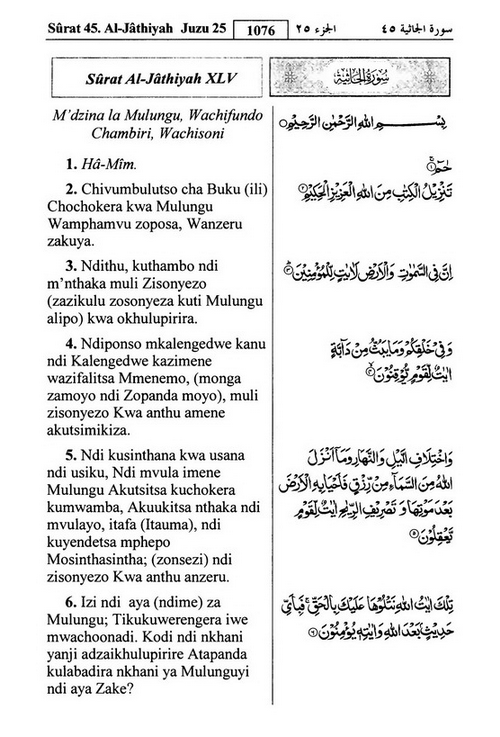 Sûrat 45. Al-Jâthiyah Juzu 25 1076 الجزء ٢٥ سورة الجاثية ٤٥
Sûrat Al-Jâthiyah XLV
سُورَةُ الجَاثِيَةِ
M’dzina la Mulungu, Wachifundo
Chambiri, Wachisoni
بِسْمِ اللهِ الرَّحْمٰنِ الرَّحِيْمِ
1. Hâ-Mîm.
حٰمٓ ۝١
2. Chivumbulutso cha Buku (ili)
Chochokera kwa Mulungu
Wamphamvu zoposa, Wanzeru
zakuya.
تَنْزِيْلُ الْكِتٰبِ مِنَ اللهِ الْعَزِيْزِ الْحَكِيْمِ ۝٢
3. Ndithu, kuthambo ndi
m’nthaka muli Zisonyezo
(zazikulu zosonyeza kuti Mulungu
alipo) kwa okhulupirira.
اِنَّ فِى السَّمٰوٰتِ وَالْاَرْضِ لَاٰيٰتٍ لِّلْمُؤْمِنِيْنَ ۝٣
4. Ndiponso mkalengedwe kanu
ndi Kalengedwe kazimene
wazifalitsa Mmenemo, (monga
zamoyo ndi Zopanda moyo), muli
zisonyezo Kwa anthu amene
akutsimikiza.
وَفِىْ خَلْقِكُمْ وَمَا يَبُثُّ مِنْ دَآبَّةٍ
اٰيٰتٌ لِّقَوْمٍ يُّوْقِنُوْنَ ۝٤
5. Ndi kusinthana kwa usana
ndi usiku, Ndi mvula imene
Mulungu Akutsitsa kuchokera
kumwamba, Akuukitsa nthaka ndi
mvulayo, itafa (Itauma), ndi
kuyendetsa mphepo
Mosinthasintha; (zonsezi) ndi
zisonyezo Kwa anthu anzeru.
وَاخْتِلَافِ الَّيْلِ وَالنَّهَارِ وَمَآ اَنْزَلَ
اللهُ مِنَ السَّمَآءِ مِنْ رِّزْقٍ فَاَحْيَا بِهِ الْاَرْضَ
بَعْدَ مَوْتِهَا وَتَصْرِيْفِ الرِّيٰحِ اٰيٰتٌ لِّقَوْمٍ
يَّعْقِلُوْنَ ۝٥
6. Izi ndi aya (ndime) za
Mulungu; Tikukuwerengera iwe
mwachoonadi. Kodi ndi nkhani
yanji adzaikhulupirire Atapanda
kulabadira nkhani ya Mulunguyi
ndi aya Zake?
تِلْكَ اٰيٰتُ اللهِ نَتْلُوْهَا عَلَيْكَ بِالْحَقِّ ۚ فَبِاَىِّ
حَدِيْثٍۭ بَعْدَ اللهِ وَاٰيٰتِهٖ يُؤْمِنُوْنَ ۝٦